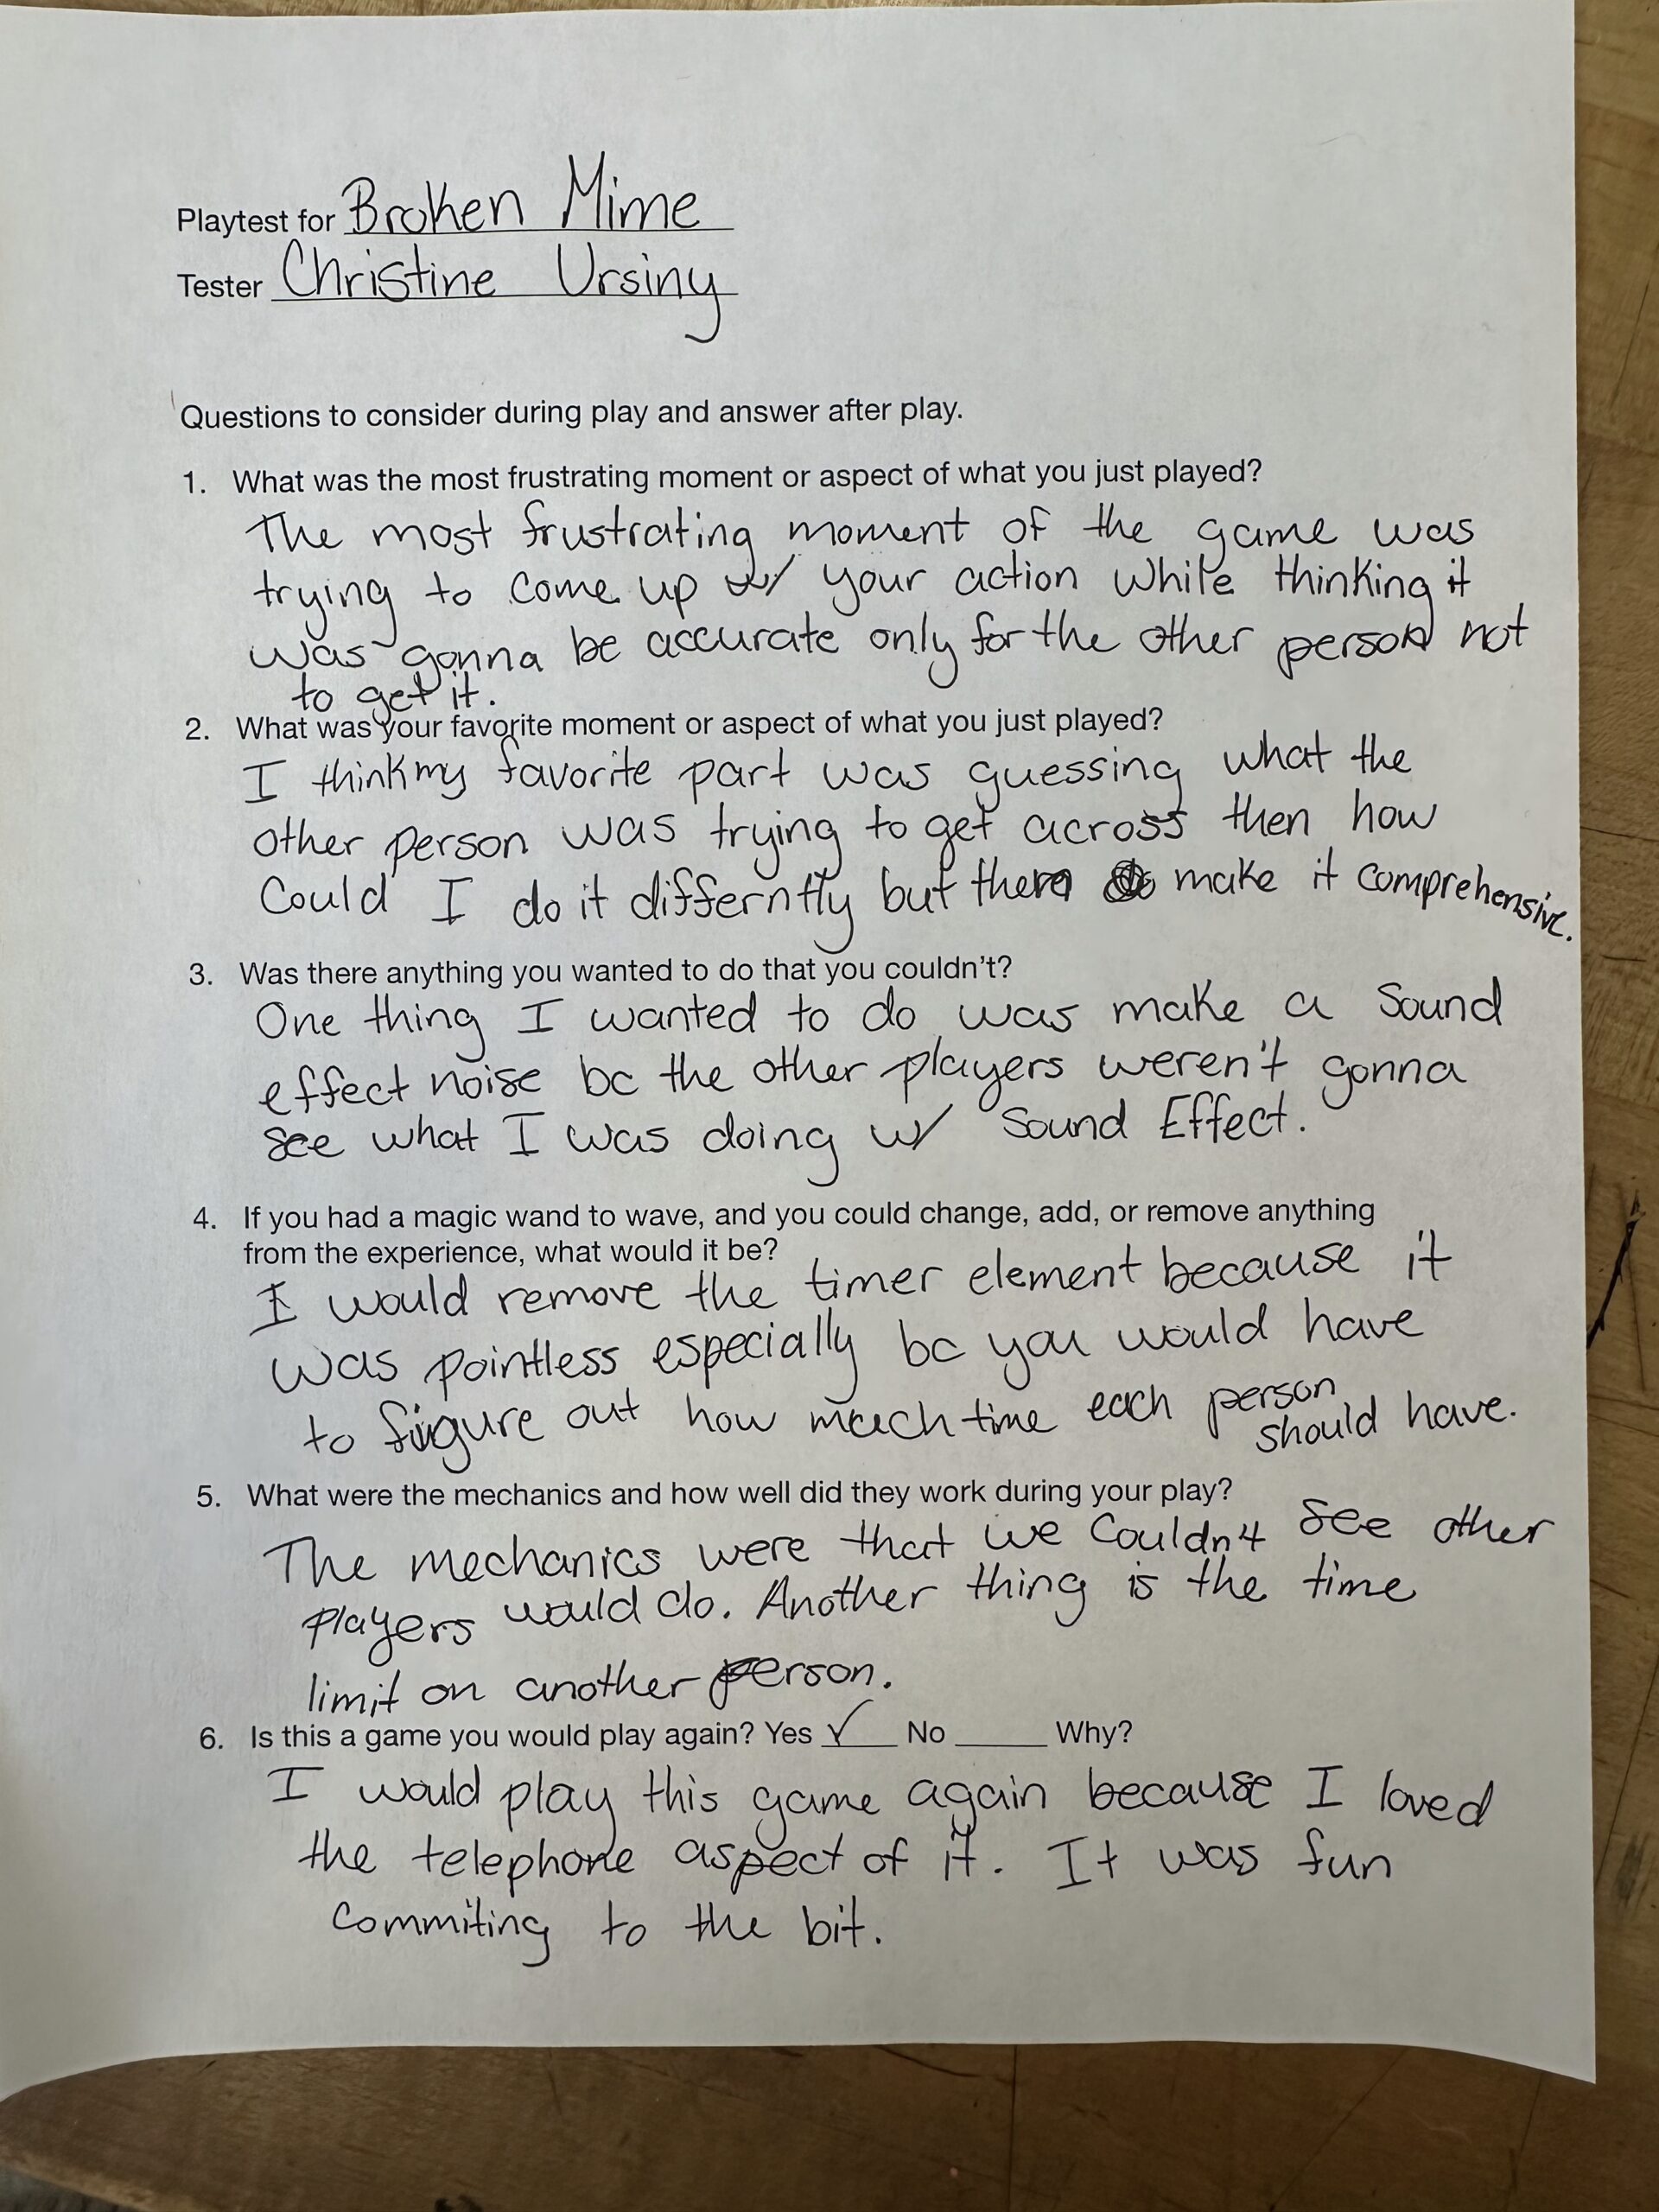 Playtest for Broken Mime
Tester Christine Ursiny
Questions to consider during play and answer after play.
1. What was the most frustrating moment or aspect of what you just played?
The most frustrating moment of the game was
trying to come up w/ your action while thinking it
was gonna be accurate only for the other person not
to get it.
2. What was your favorite moment or aspect of what you just played?
I think my favorite part was guessing what the
other person was trying to get across then how
Could I do it differntly but then make it comprehensive.
3. Was there anything you wanted to do that you couldn't?
One thing I wanted to do was make a sound
effect noise bc the other players weren't gonna
see what I was doing w/ Sound Effect.
4. If you had a magic wand to wave, and you could change, add, or remove anything
from the experience, what would it be?
I would remove the timer element because it
was pointless especially bc you would have
to figure out how much time each person
should have.
5. What were the mechanics and how well did they work during your play?
The mechanics were that we Couldn't see other
players would do. Another thing is the time
limit on another person.
6. Is this a game you would play again? Yes ✓ No _____ Why?
I would play this game again because I loved
the telephone aspect of it. It was fun
Commiting to the bit.